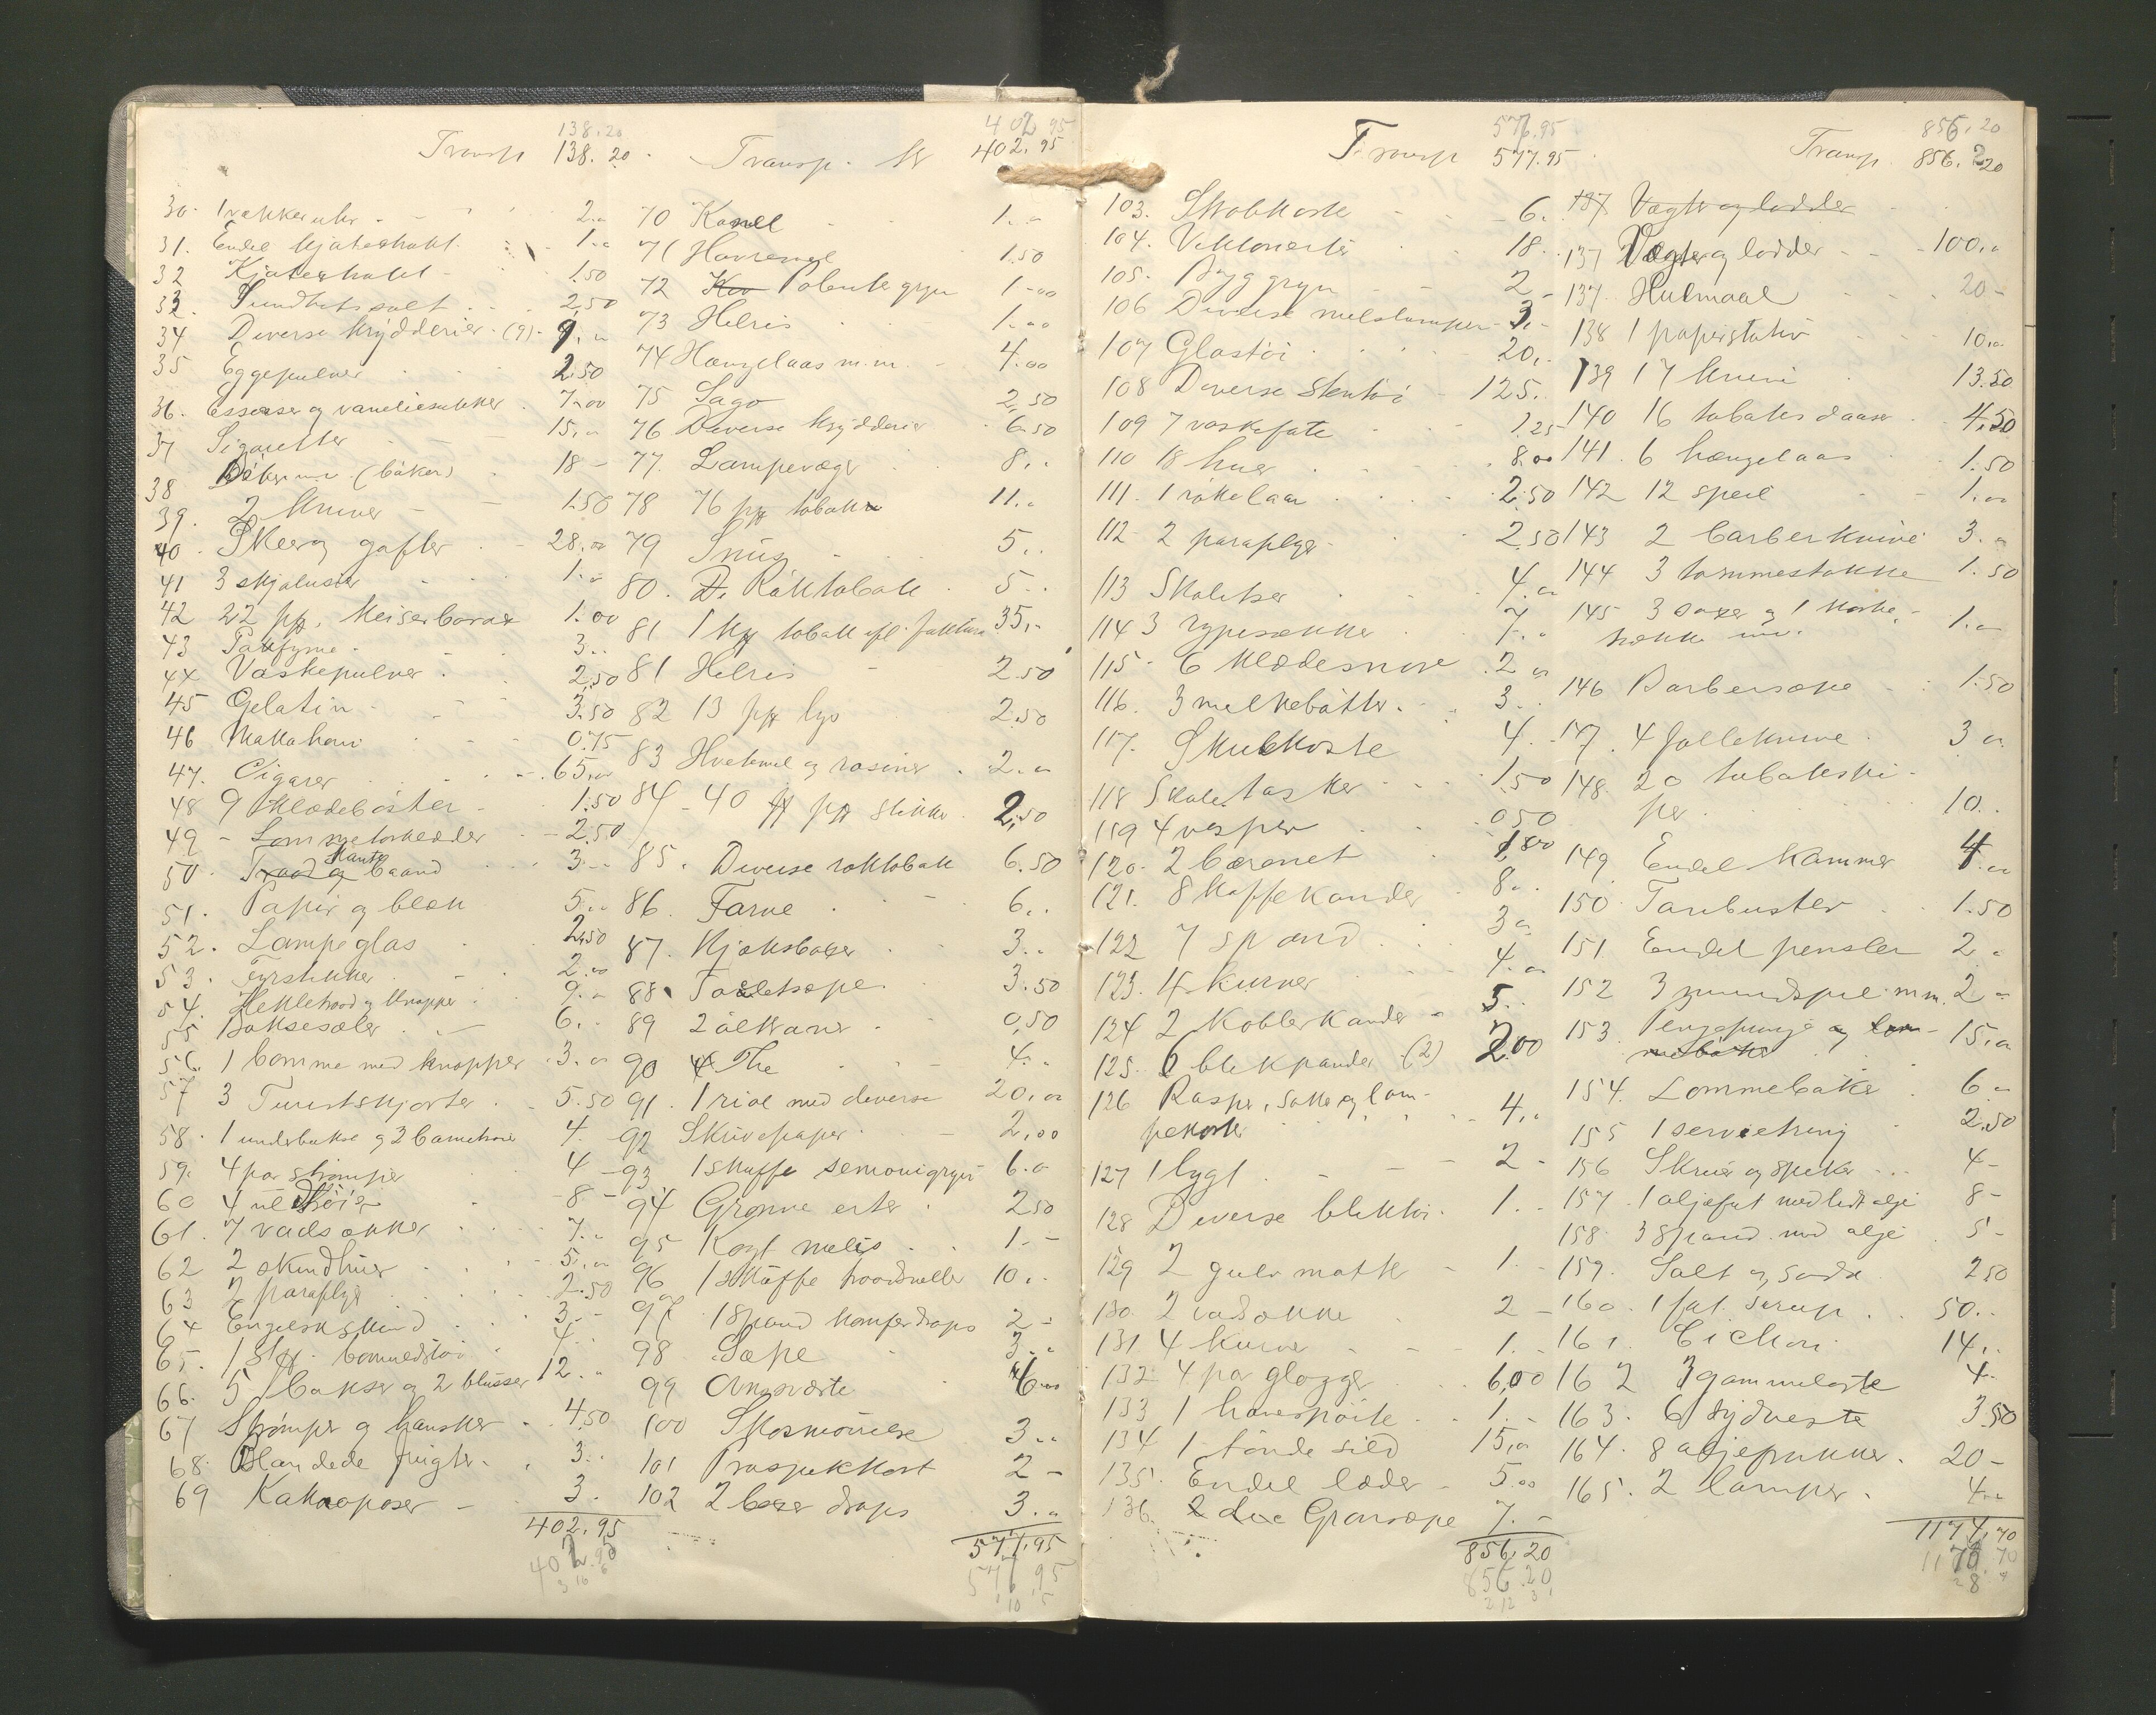 138.20
Transp 138.20
30. 1 vækkeruhr 2.-
31. Endel kjøteshakl. 1.-
32 Kjøteshakl 1.50
33. Sundhetssalt 2.50
34 Diverse krydderier (9) 9.-
35 Eggepulver 2.50
36. Essenser og vaneliesukker 7.00
37 Sigaretter 15.-
38 (bøker) 18 -
39. 2 kniver 1.50
40. Skeer og gafler 28.00
41 3 skjaluser 1.-
42 22 pk. Keiserborax 1.00
43 Parfyme 3.-
44 Vaskepulver 2.50
45 Gelatin 3.50
46 Makaroni 0.75
47. Cigarer 65.00
48 9 klædebörster 1.50
49 - Lommetörklæder 2.50
50. Traad og Kantebaand 3.-
51. Papir og blæk 5.-
52. Lampeglas 2.50
53. Fyrstikker 2.00
54. Hekletraad og knapper 9.-
55 Buksesæler 6.-
56. 1 bomme med knapper 3.00
57 3 Turistskjorter 5.50
58. 1 underbukse og 2 barnetröier 4.-
59. 4 par strömper 4 -
60 4 ul tröier 8 -
61. 7 vadsækker 7.-
62 2 skindhuer 5.00
63 2 paraplyer 2.50
64 Engelskskind 3.-
65. 1 stk. bomuldstöi 4.-
66. 5 bukser og 2 blusser 12.-
67 Strömper og hansker 4.50
68. Blandede frugter 3.-
69 Kakaoposer 3.
402.95
402.95
402.95
Transp. kr 402.95
70 Kanel 1.-
71 Havremel 1.50
72 Kav Polentegryn 1.00
73 Helris 1.00
74 Hængelaas m.m. 4.00
75 Sago 2.50
76 Diverse krydderier 6.50
77. Lampevæger 8.-
78 76 pk tobakk 11.-
79 Snus 5.-
80. Röktobak 5.-
81 1 kg tobakk efl. faktura 35.-
81 Helris 2.50
82 13 pk lys 2.50
83 Hvetemel og rosiner 2.00
84 - 40 pk stikker 2.50
85. Diverse röktobak 6.50
86. Farve 6.-
87. Kjeksboxer 3.-
88. Toaletsæpe 3.50
89 2 ölkraner 0.50
90 The 4.-
91. 1 riol med diverse 20.00
92 Skrivepapir 2.00
93 1 skuffe semoulegryn 6.0
94 Grønne erter 2.50
95 Kogt melis 1.-
96 1 skuffe traadsneller 10.-
97 1 spand kamferdrops 2 -
98 Sæpe 3.-
99 Ovnsværte 6.00
100 Skosmörelse 3.-
101 Prospektkort 2 -
102 2 boxer drops 3.-
577.95
576.95
576.95
Transp 577.95
103. Skrobkoste 6.-
104. Viktoriaerter 18.-
105. Byggryn 2 -
106 Diverse melslumper 3.-
107 Glastöi 20.-
108 Diverse Stentöi 125.
109 7 vaskefate 1.25
110 18 huer 8.00
111. 1 rökelaar 2.50
112 2 paraplyer 2.50
113 Skaletser 4.00
114 3 rypesækker 7.-
115. 6 klædesnore 2.00
116. 3 melkebötter 3.-
117. Skurekoste 4.-
118 Skoletasker 1.50
119 4 vesper 0.50
120. 2 bærnet 1.80
121. 8 kaffekander 8.-
122 7 spand 3.00
123. 4 kurver 4.00
124 2 Koblerkander 5.-
125. 6 blekpander (2) 2.00
126 Rasper, sakse og lam-
pekoster 4.-
127 1 lygt 2 -
128 Diverse blektöi 1.-
129 2 gulvmatter 1.-
130. 2 vadsække 2 -
131 4 kurver 1.-
132. 4 par glogger 6.00
133 1 havespröite 1.-
134 1 tönde sild 15.00
135. Endel læder 5.00
136. Grønsæpe 7.-
856.20
856.20
856.20
Transp. 856.20
137 Vægter og lodder
137 Vægter og lodder 100.-
137. Hulmaal 20 -
138 1 papirstativ 10.00
139 17 kniver 13.50
140 16 tobaksdaaser 4.50
141. 6 hængelaas 1.50
142 12 speil 1.00
143 2 barberknive 3.-
144 3 tommestokke 1.50
145 3 saxer og 1 korke-
trækker 1.-
146 Barbersæpe 1.50
147. 4 follekniver 3.00
148. 20 tobakspi-
per 10.-
149. Endel kammer 4.00
150 Tanbuster 1.50
151 Endel pensler 2.-
152 3 mundspil m.m. 2 -
153. Pengepunge og lom-
mebøker 15.00
154. Lommebøker 6.-
155 1 servietring 2.50
156 Skruer og spiker 4 -
157. 1 oljefat med litt olje 8 -
158. 3 spand med olje 5 -
159. Salt og soda 2.50
160. 1 fat sirup 50.-
161. Cichori 14.-
162 3 gammeloste 4.-
163. 6 sydveste 3.50
164. 8 oljefrakker 20 -
165. 2 lamper 4.-
1174.70
1170.70